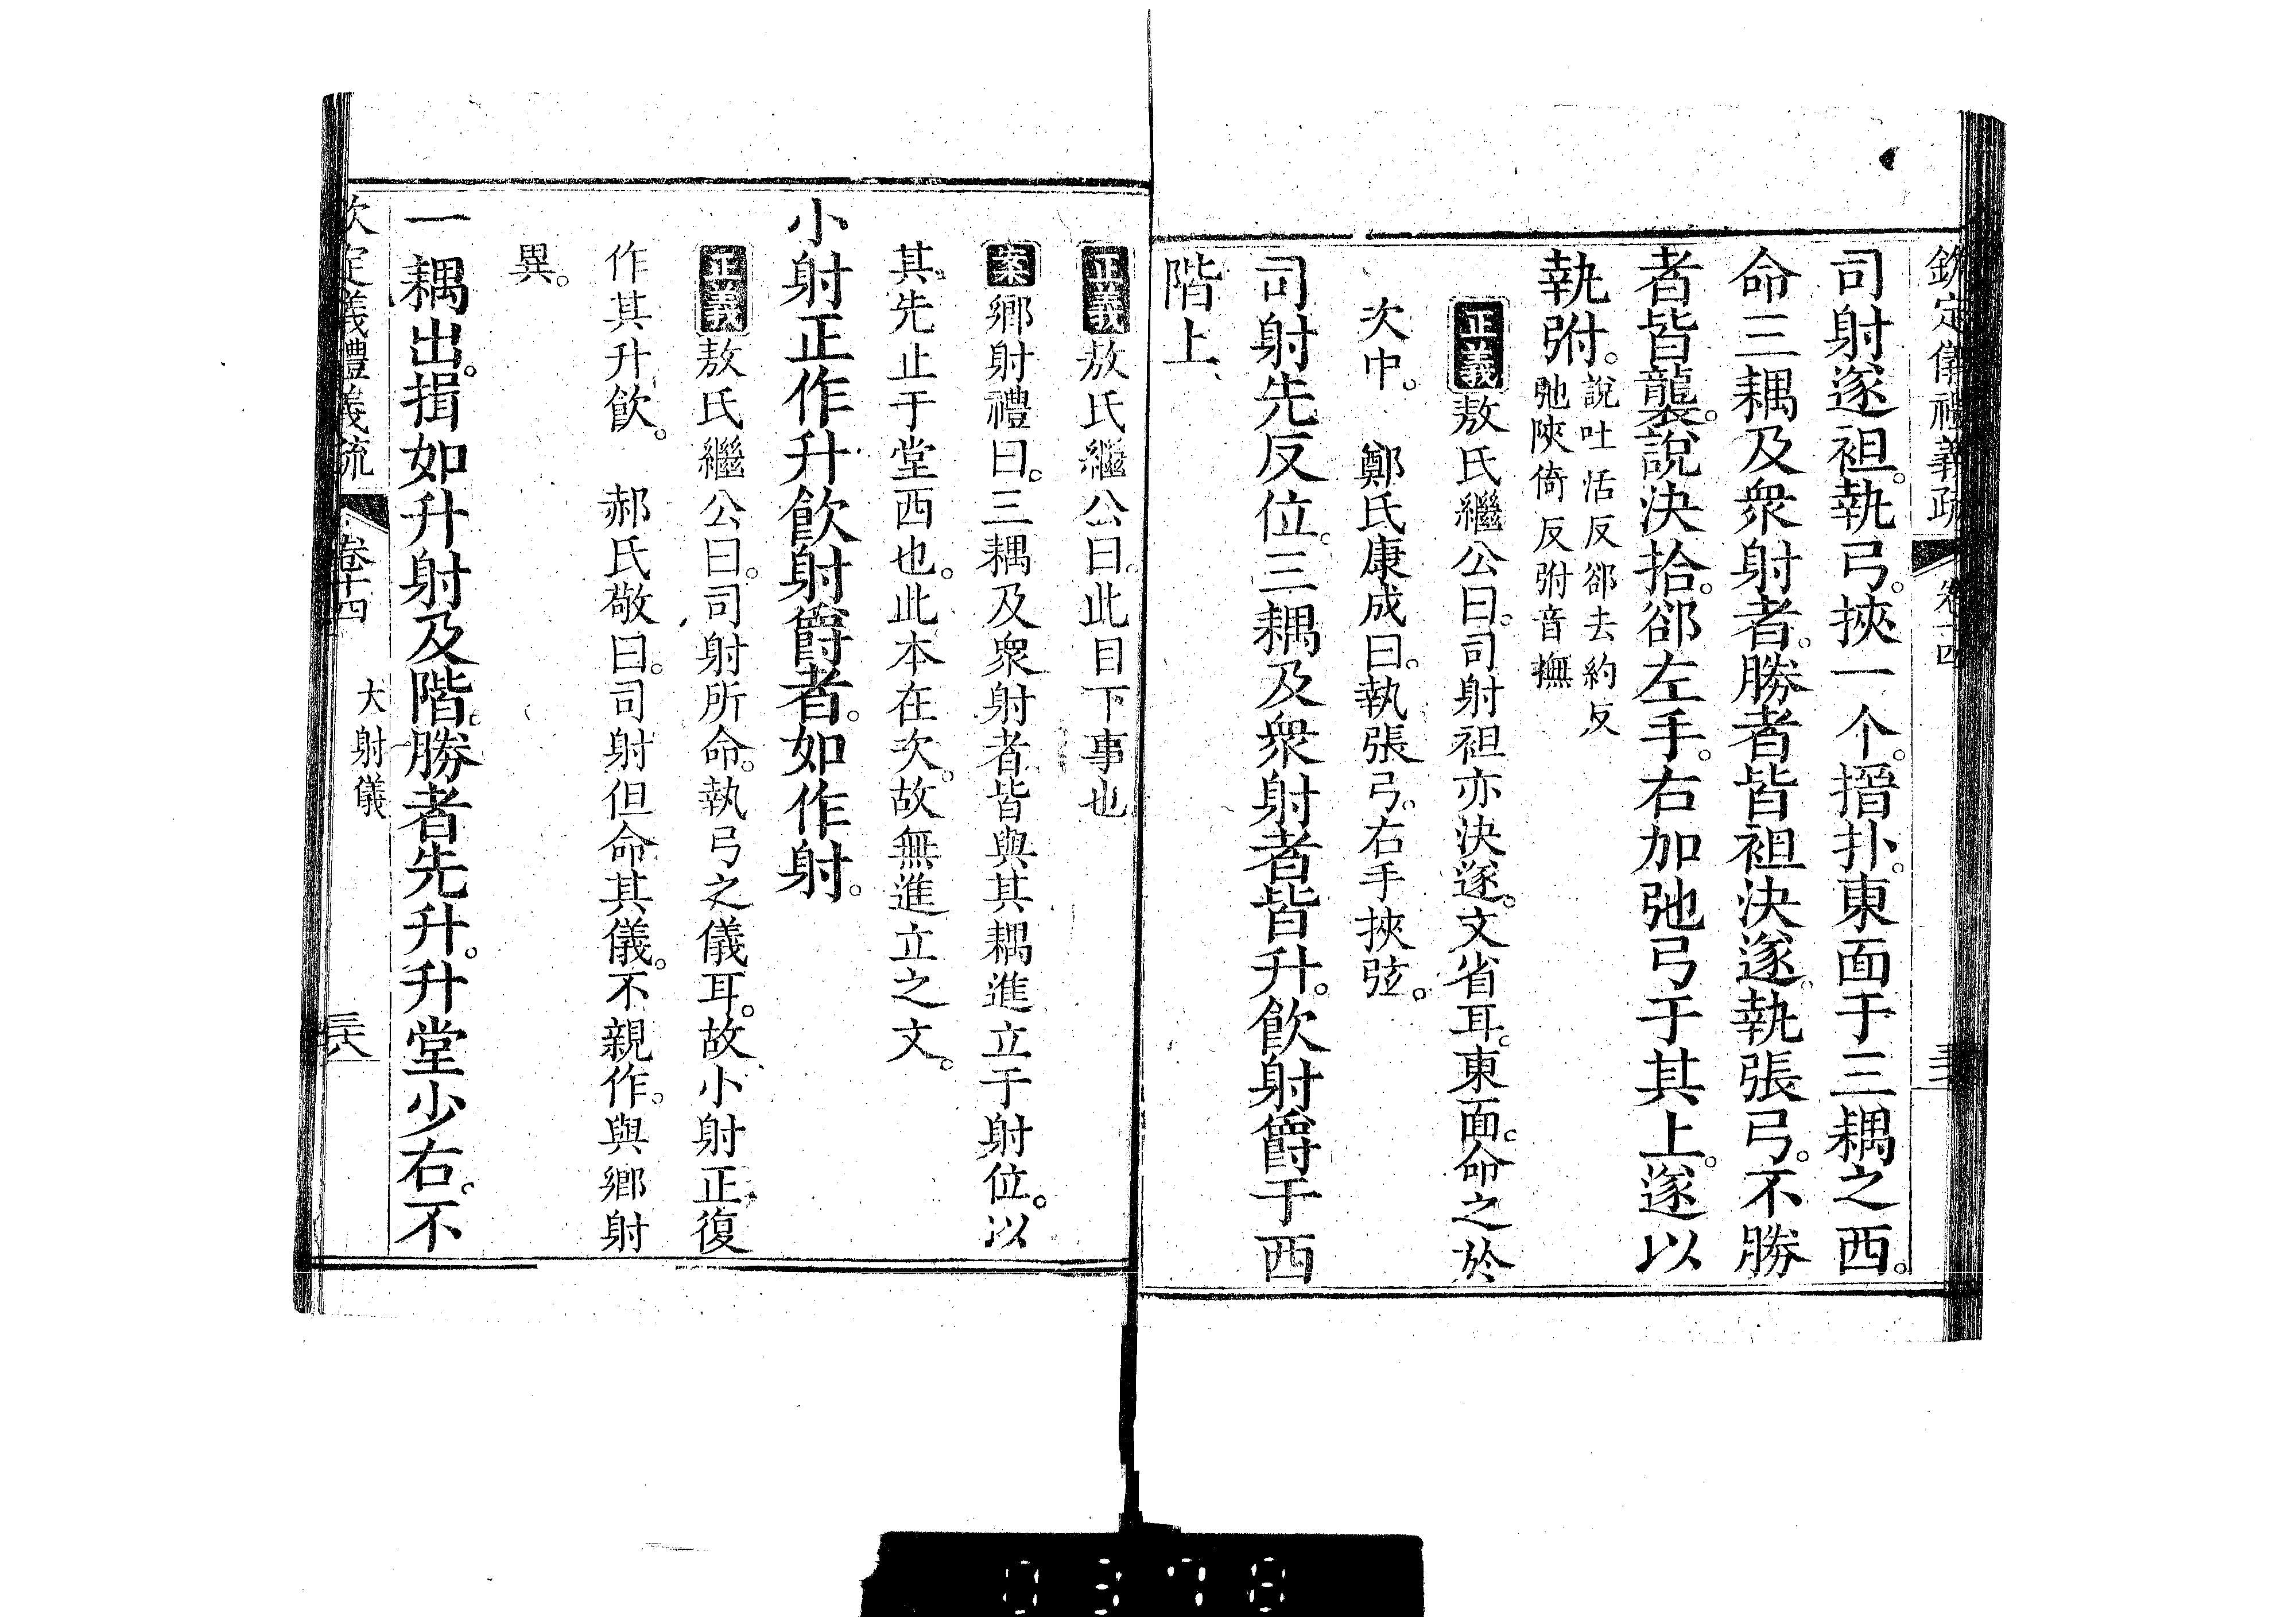 欽定儀禮義疏 卷十四
司射遂袒。執弓。挾一个。搢扑。東面于三耦之西。
命三耦及衆射者。勝者皆袒決遂。執張弓。不勝
者皆襲。說決拾。郤左手。右加弛弓于其上。遂以
執弣。說吐活反郤去約反
弛陝倚反弣音撫
正義敖氏繼公曰。司射袒亦決遂。文省耳。東面。命之於
次中。 鄭氏康成曰。執張弓。右手挾弦。
司射先反位。三耦及衆射者皆升。飲射爵于西
階上
正義敖氏繼公曰。此目下事也
案鄉射禮曰。三耦及衆射者皆與其耦進立于射位。以
其先止于堂西也。此本在次。故無進立之文。
小射正作升飲射爵者。如作射。
正義敖氏繼公曰。司射所命。執弓之儀耳。故小射正復
作其升飲。 郝氏敬曰。司射但命其儀。不親作。與鄉射
異。
一耦出。揖如升射。及階。勝者先升。升堂少右。不
欽定義禮義疏 卷十四 大射儀 三十八
0378